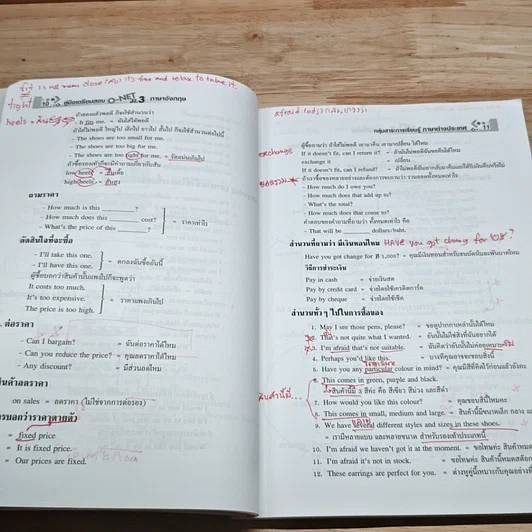 fit is not mean close (ปิด) it's free and relax to take it.
tight
10 คู่มือเตรียมสอบ O-NET ม.3 ภาษาอังกฤษ
ถ้าสวมแล้วพอดี ก็จะใช้สำนวนว่า
- It fits me. = มันใส่ได้พอดี
ถ้าใส่ไม่พอดี ใหญ่ไป เล็กไป ยาวไป สั้นไป ก็จะใช้สำนวนดังต่อไปนี้
- The shoes are too small for me.
- The shoes are too big for me.
- The shoes are too tight for me. = รัดแน่นเกินไป
ถ้าซื้อรองเท้าก็จะมีคำถามเกี่ยวกับส้น
heels =
low heels = ส้นเตี้ย
high heels = ส้นสูง
ถามราคา
- How much is this ________?
- How much does this ________ cost?
- What's the price of this ________?
= ราคาเท่าไร
ตัดสินใจที่จะซื้อ
- I'll take this one.
- I'll have this one.
= ตกลงฉันซื้ออันนี้
ผู้ซื้อบอกว่าสินค้านั้นแพงไปก็จะพูดว่า
It costs too much.
It's too expensive.
The price is too high.
= ราคาแพงเกินไป
ต่อราคา
- Can I bargain? = ฉันต่อราคาได้ไหม
- Can you reduce the price? = คุณลดราคาได้ไหม
- Any discount? = มีส่วนลดไหม
สินค้าลดราคา
on sales = ลดราคา (ไม่ใช่จากการต่อรอง)
การบอกว่าราคาตายตัว
= fixed price
= It is fixed price.
= Our prices are fixed.
กลุ่มสาระการเรียนรู้ ภาษาต่างประเทศ 11
ผู้ซื้อถามว่า ถ้าใส่ไม่พอดี เอามาคืน เอามาเปลี่ยน ได้ไหม
If it doesn't fit, can I return it? = ถ้ามันไม่พอดีฉันขอคืนได้ไหม
exchange
exchange it = เปลี่ยน
If it doesn't fit, can I refund?
- How much do I owe you?
- How much does that add up to?
- What's the total?
- How much does that come to?
คำตอบของคำถามว่า ทั้งหมดเท่าไร คือ
- That will be ________ dollars/baht.
สำนวนที่ถามว่า มีเงินทอนไหม Have you got change for 10$?
Have you got change for ฿ 1,000? = คุณมีเงินทอนสำหรับธนบัตรใบละพันบาทไหม
วิธีการชำระเงิน
Pay in cash = จ่ายเงินสด
Pay by credit card = จ่ายโดยใช้เครดิตการ์ด
Pay by cheque = จ่ายโดยใช้เช็ค
สำนวนทั่ว ๆ ไปในการซื้อของ
1. May I see those pens, please? = ขอดูปากกาเหล่านั้นได้ไหม
2. That's not quite what I wanted. = อันนั้นไม่ใช่สิ่งที่ฉันอยากได้
3. I'm afraid that's not suitable. = ฉันคิดว่าอันนั้นไม่ค่อยเหมาะ
4. Perhaps you'd like this. = บางทีคุณอาจจะชอบสิ่งนี้
5. Have you any particular colour in mind? = คุณมีสีที่คิดไว้ก่อนแล้วยังคะ
6. This comes in green, purple and black.
= สินค้านี้มี 3 สีค่ะ คือ สีเขียว สีม่วง และสีดำ
สินค้านี้มี...
7. How would you like this colour? = คุณชอบสีนี้ไหมคะ
8. This comes in small, medium and large. = สินค้านี้มีขนาดเล็ก กลาง
9. We have several different styles and sizes in these shoes.
= เรามีหลายแบบ และหลายขนาด สำหรับรองเท้าประเภทนี้
10. I'm afraid we haven't got it at the moment. = ขอโทษค่ะ สินค้าหมด
11. I'm afraid it's not in stock. = ขอโทษค่ะ สินค้านี้หมดสต็อก
12. These earrings are perfect for you. = ต่างหูคู่นี้เหมาะกับคุณอย่าง